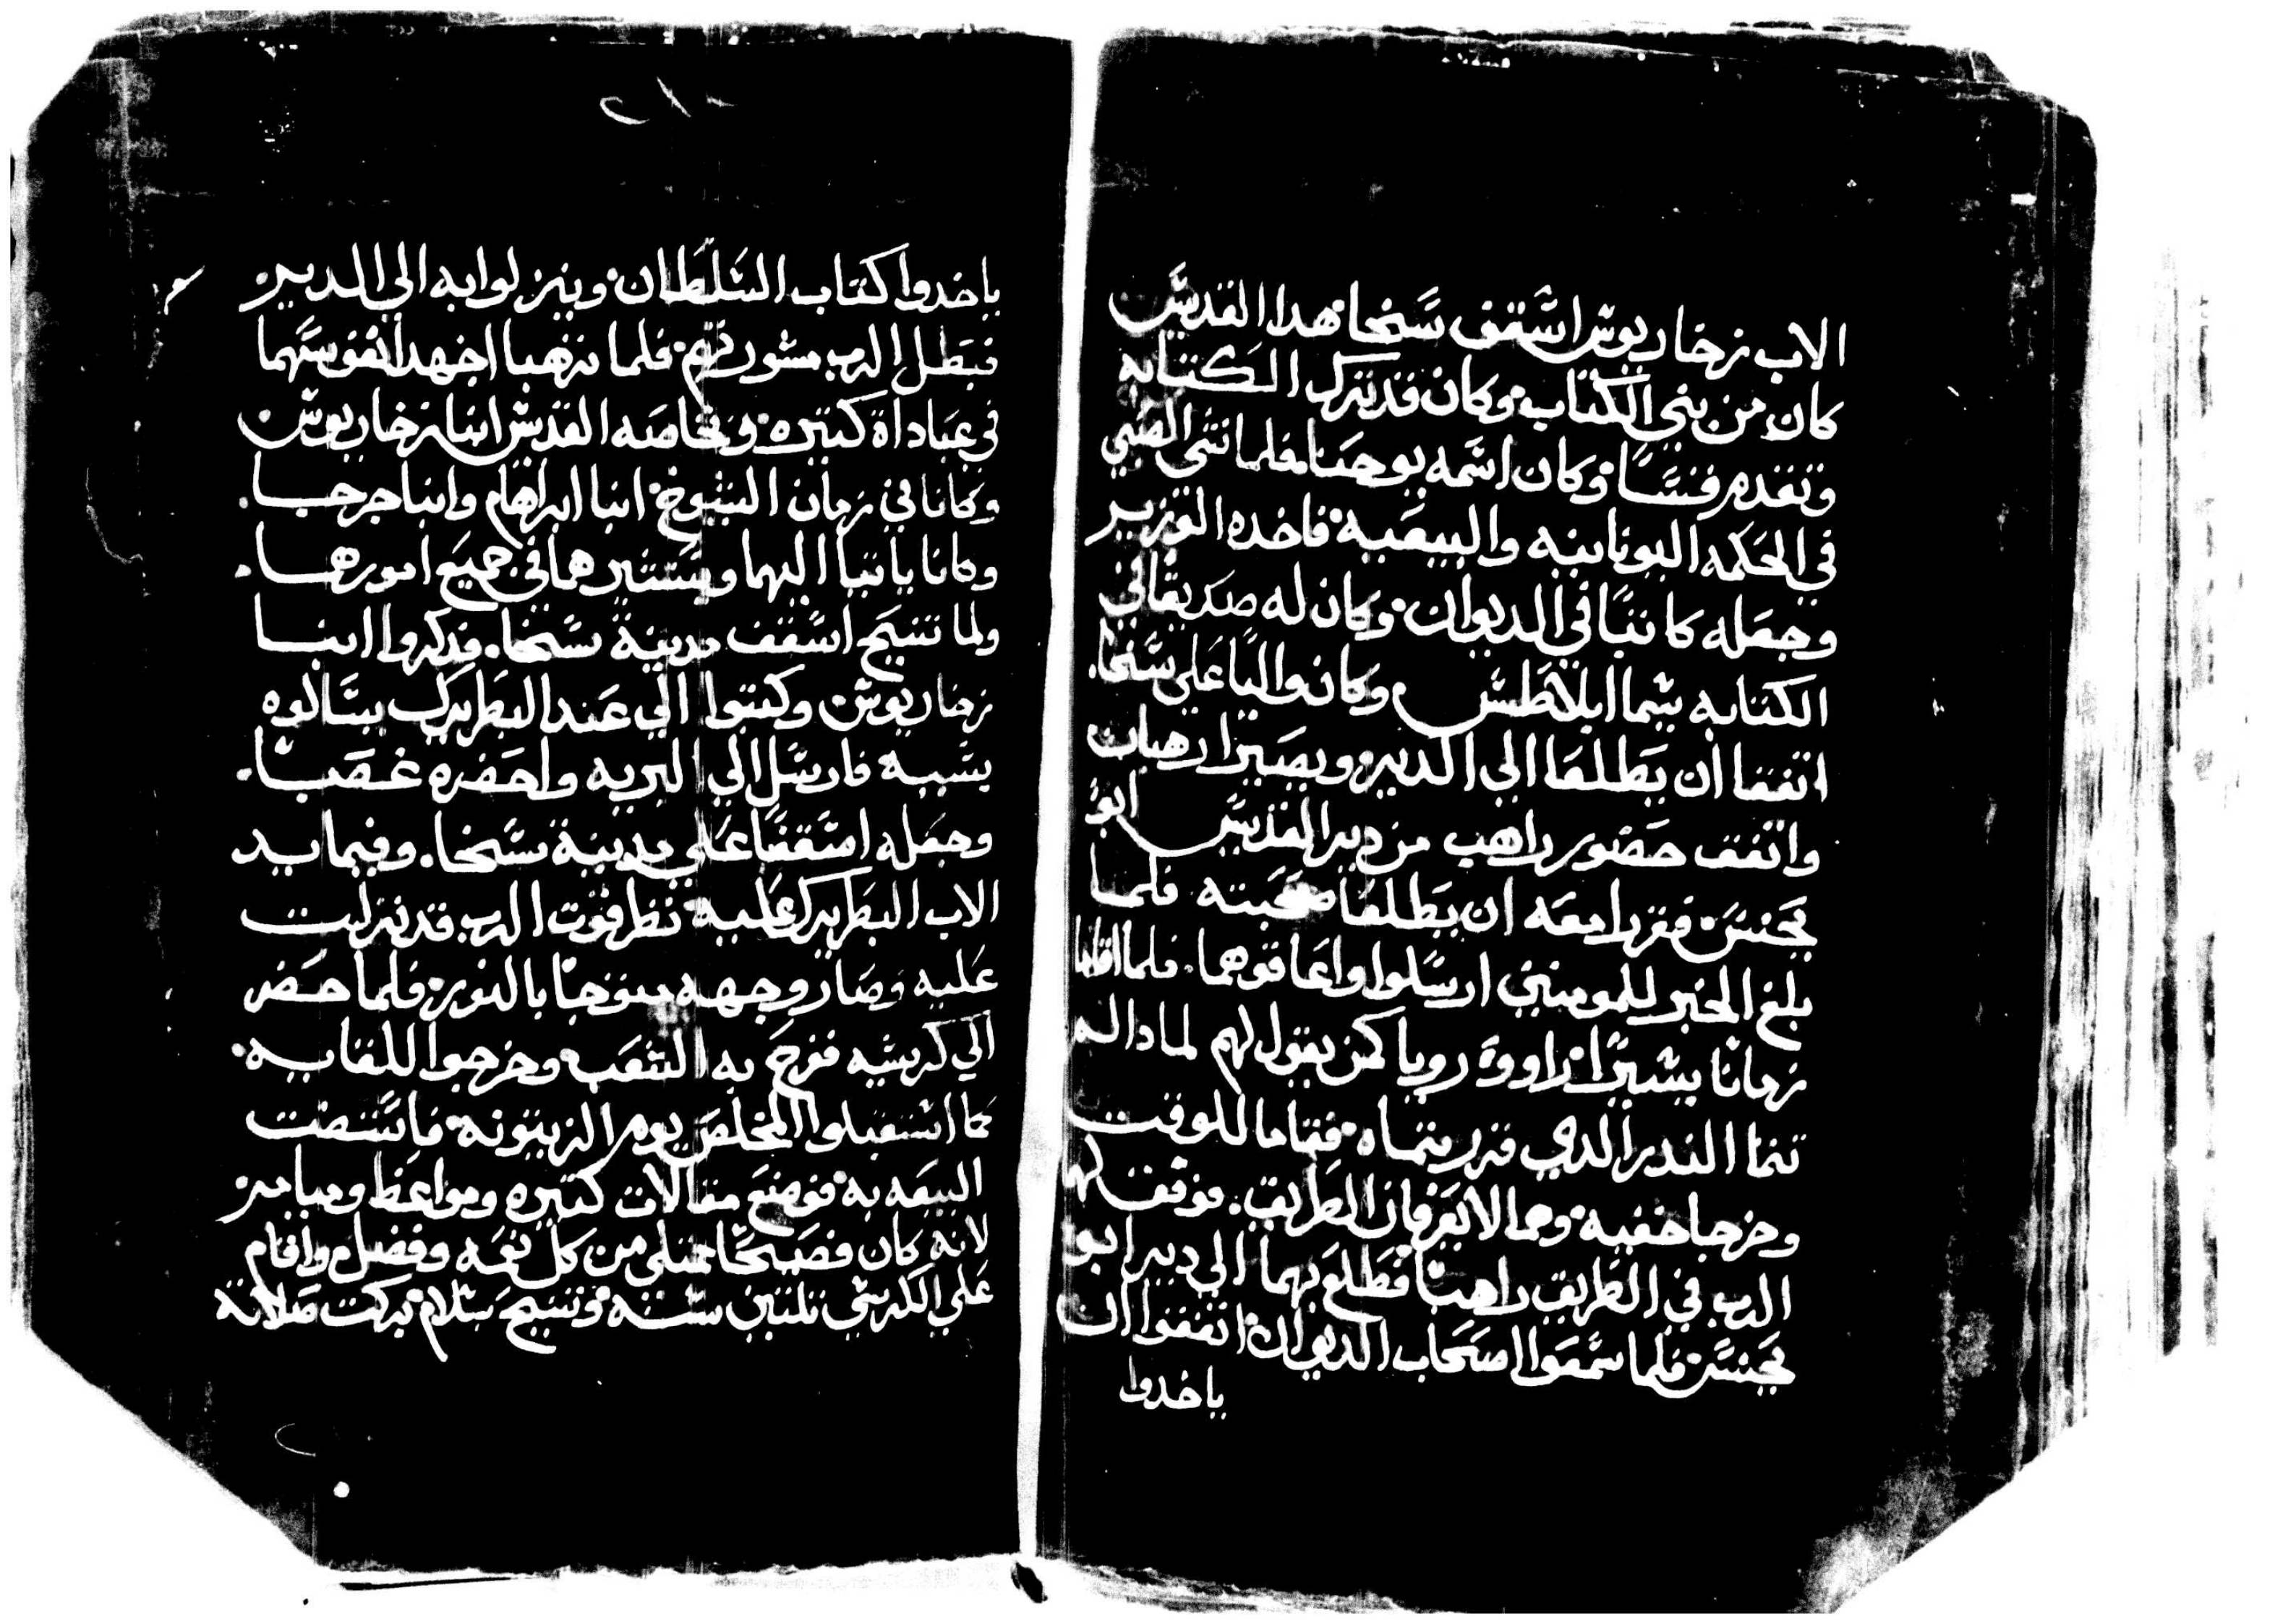 الاب زخاريوس اسقف سخا هدا القديس
كان من بني الكتاب وكان قد ترك الكتابه
وتقدم قسا وكان اسمه يوحنا فلما نشي الصبي
في الحكمه اليونانيه والبيعيه فاخده الوزير
وجعله كاتبا في الديوان وكان له صديقا في
الكتابه يسما ابلاطس وكان واليا علي سخا
اتفقا ان يطلعا الي الدير ويصيرا رهبان
واتفق حضور راهب من دير القديس ابو
يحنس فقررا معه ان يطلعا صحبته فلما
بلغ الخبر للمومنين ارسلوا واعاقوهما فلما اقاما
زمانا يسيرا راووا رويا كمن يقول لهم لمادا لم
تتما الندر الدي قررتماه فقاما للوقت
وخرجا خفيه وهما لا يعرفان الطريق فوقف لهما
الرب في الطريق راهبا فطلع بهما الي دير ابو
يحنس فلما سمعوا اصحاب الديوان اتفقوا ان
ياخدوا
ياخدوا كتاب السلطان وينزلوا به الي الدير
فبطل الرب مشورتهم فلما ترهبا اجهدا نفوسهما
في عباداة كتيره وبخاصه القديس انبا زخاريوس
وكانا في زمان الشيوخ انبا ابراهام وانبا جرجا
وكانا ياتيا اليهما ويستشيرهما في جميع امورهما
ولما تنيح اسقف مدينة سخا فدكروا انبا
زخاريوس وكتبوا الي عند البطريرك يسالوه
بسببه فارسل الي البريه واحضره غصبا
وجعله اسقفا علي مدينة سخا وفيما يد
الاب البطريرك عليه نظر قوت الرب قد نزلت
عليه وصار وجهه متوجا بالنور فلما حضر
الي كرسيه ففرح به الشعب وخرجوا للقايه
كما استقبلوا المخلص يوم الزيتونه فاستضت
البيعه به فوضع مقالات كتيره ومواعظ وميامر
لانه كان فصيحا ممتلي من كل نعمه وفضل واقام
علي الكرسي تلتين سنة وتنيح بسلام بركت صلاته